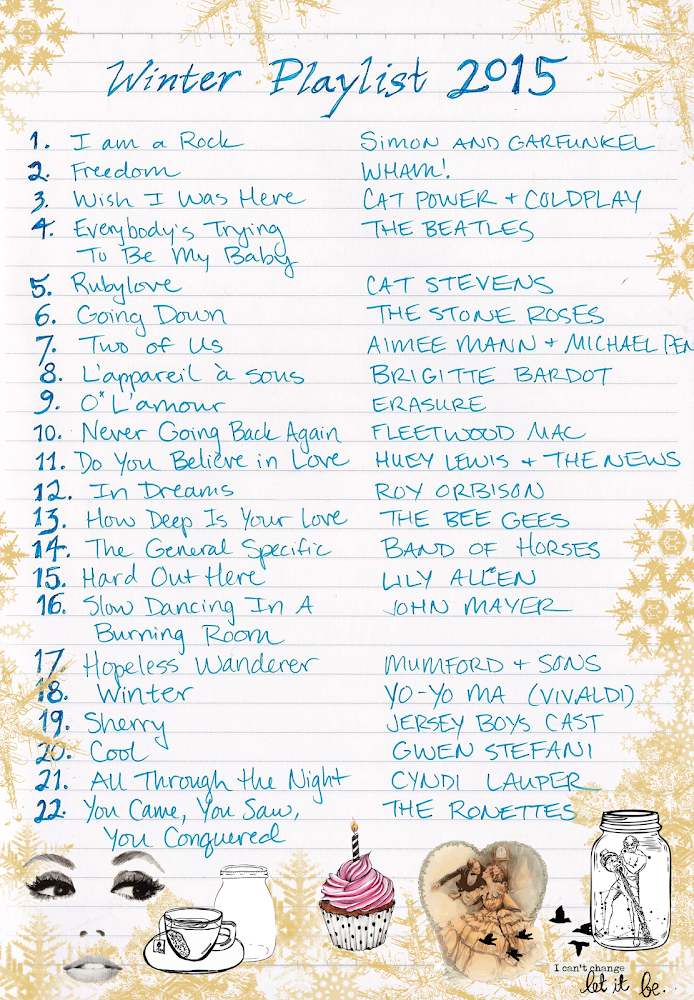 Winter Playlist 2015
1. I am a Rock SIMON AND GARFUNKEL
2. Freedom WHAM!
3. Wish I Was Here CAT POWER + COLDPLAY
4. Everybody's Trying THE BEATLES
To Be My Baby
5. Rubylove CAT STEVENS
6. Going Down THE STONE ROSES
7. Two of Us AIMEE MANN + MICHAEL PEN
8. L'appareil à sous BRIGITTE BARDOT
9. O* L'amour ERASURE
10. Never Going Back Again FLEETWOOD MAC
11. Do You Believe in Love HUEY LEWIS + THE NEWS
12. In Dreams ROY ORBISON
13. How Deep Is Your Love THE BEE GEES
14. The General Specific BAND OF HORSES
15. Hard Out Here LILY ALLEN
16. Slow Dancing In A JOHN MAYER
Burning Room
17. Hopeless Wanderer MUMFORD + SONS
18. Winter YO-YO MA (VIVALDI)
19. Sherry JERSEY BOYS CAST
20. Cool GWEN STEFANI
21. All Through the Night CYNDI LAUPER
22. You Came, You Saw, THE RONETTES
You Conquered
I can't change
let it be.